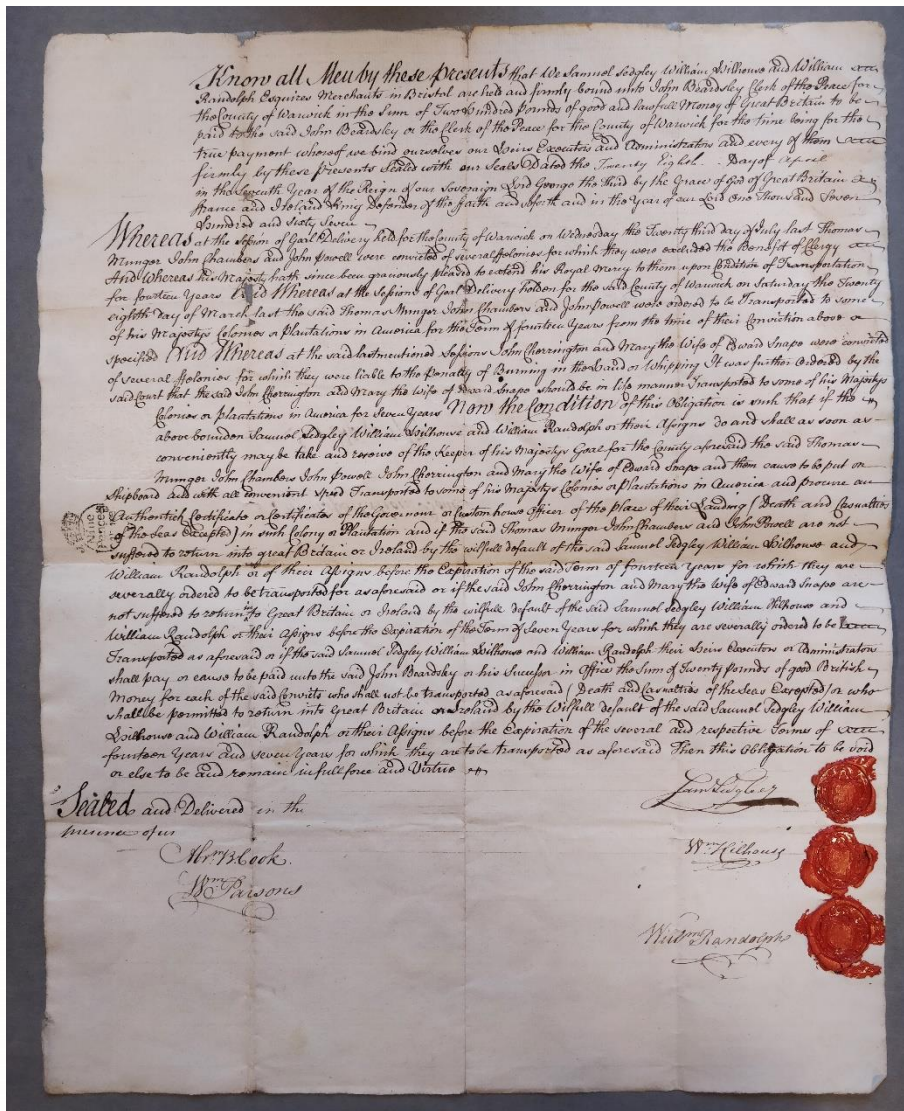 Know all Men by these presents that We Samuel Sedgley William Hilhouse and William
Randolph Esquires Merchants in Bristol are held and firmly bound unto John Beardsley Clerk of the Peace for
the County of Warwick in the Sum of Two Hundred pounds of good and lawfull Money of Great Britain to be
paid to the said John Beardsley or the Clerk of the Peace for the County of Warwick for the time being for the
true payment whereof we bind ourselves our Heirs Executors and Administrators and every of them
firmly by these presents Sealed with our Seals Dated the Twenty Eighth Day of April
in the Seventh Year of the Reign of our Sovereign Lord George the third by the Grace of God of Great Britain
france and Ireland King Defender of the ffaith and soforth and in the Year of our Lord One Thousand Seven
Hundred and sixty Seven
Whereas at the Session of Goal Delivery held for the County of Warwick on Wednesday the Twenty third day of July last Thomas
Munger John Chambers and John Powell were convicted of several ffelonies for which they were excluded the Benefit of Clergy
And Whereas his Majesty hath since been graciously pleased to extend his Royal Mercy to them upon Condition of Transportation
for fourteen Years And Whereas at the Sessions of Goal Delivery holden for the said County of Warwick on Saturday the Twenty
eighth Day of March last the said Thomas Munger John Chambers and John Powell were ordered to be Transported to some
of his Majestys Colonies or Plantations in America for the Term of fourteen Years from the time of their Conviction above
specified And Whereas at the said last mentioned Sessions John Cherrington and Mary the Wife of Edward Snape were convicted
of several ffelonies for which they were liable to the Penalty of Burning in the Hand or Whipping It was further Ordered by the
said Court that the said John Cherrington and Mary the Wife of Edward Snape should be in like manner Transported to some of his Majestys
Colonies or Plantations in America for Seven Years Now the Condition of this Obligation is such that if the
above bounden Samuel Sedgley William Hilhouse and William Randolph or their Assigns do and shall as soon as
conveniently may be take and receive of the Keeper of his Majestys Goal for the County aforesaid the said Thomas
Munger John Chambers John Powell John Cherrington and Mary the Wife of Edward Snape and them cause to be put on
Shipboard and with all convenient speed Transported to some of his Majestys Colonies or Plantations in America and procure an
Authentick Certificate or Certificates of the Governour or Custom house Officer of the place of their Landing (Death and Casualties
of the Seas Excepted) in such Colony or Plantation and if the said Thomas Munger John Chambers and John Powell are not
suffered to return into great Britain or Ireland by the wilfull default of the said Samuel Sedgley William Hilhouse and
William Randolph or of their Assigns before the Expiration of the said Term of fourteen Years for which they are
severally ordered to be transported for as aforesaid or if the said John Cherrington and Mary the Wife of Edward Snape are
not suffered to return to Great Britain or Ireland by the wilfull default of the said Samuel Sedgley William Hilhouse and
William Randolph or their Assigns before the Expiration of the Term of Seven Years for which they are severally ordered to be
Transported as aforesaid or if the said Samuel Sedgley William Hilhouse and William Randolph their Heirs Executors or Administrators
shall pay or cause to be paid unto the said John Beardsley or his Successor in Office the Sum of Twenty pounds of good British
Money for each of the said Convicts who shall not be transported as aforesaid (Death and Casualties of the Seas Excepted) or who
shall be permitted to return into Great Britain or Ireland by the Wilfull default of the said Samuel Sedgley William
Hilhouse and William Randolph or their Assigns before the Expiration of the several and respective Terms of
fourteen Years and seven Years for which they are to be transported as aforesaid Then this Obligation to be void
or else to be and remain in full force and Virtue
Sealed and Delivered in the
presence of us
Abrm B Cook.
Wm Parsons
Saml Sedgley
Wm Hilhouse
Willm Randolph
Nine
pence